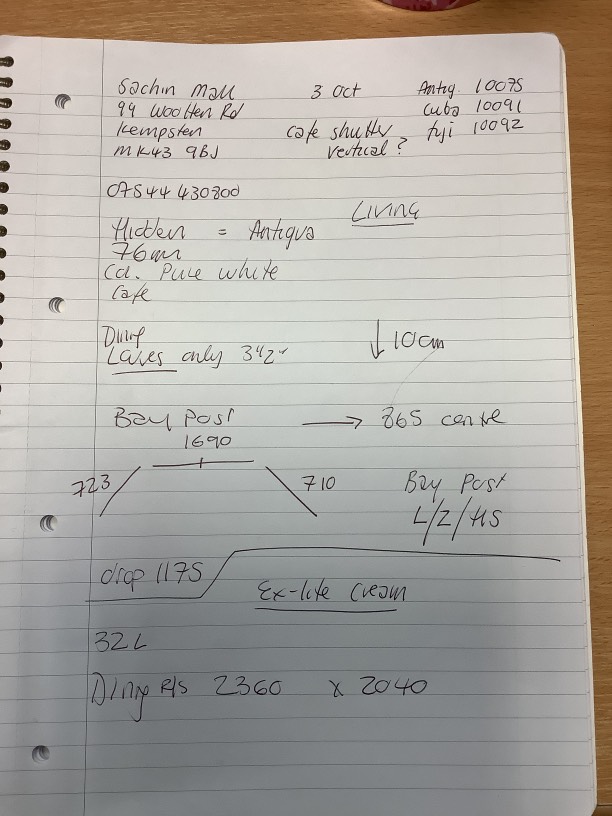 Sachin Mall 3 Oct Antig. 10075
99 Wootten Rd Cuba 10091
Kempsten cafe shutter fiji 10092
MK43 9BJ vertical?
07544 430800
Living
Hidden = Antiqua
76mm
Col. Pure white
Cafe
Dinng
Lares only 3½" ↓ 10cm
Bay Post → 865 centre
1690
723 710 Bay Post
L/Z/HS
drop 1175
Ex-lite Cream
32L
Dinng R/S 2360 x 2040